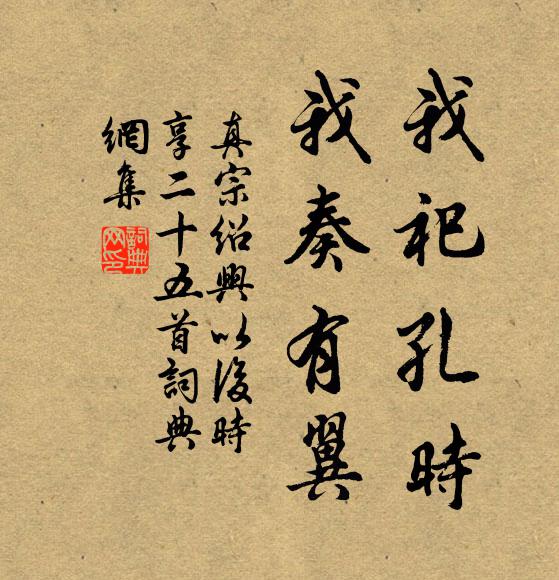 我祀孔時
我奏有翼
真宗紹興以後時
享二十五首詞典
網集
詞典網印